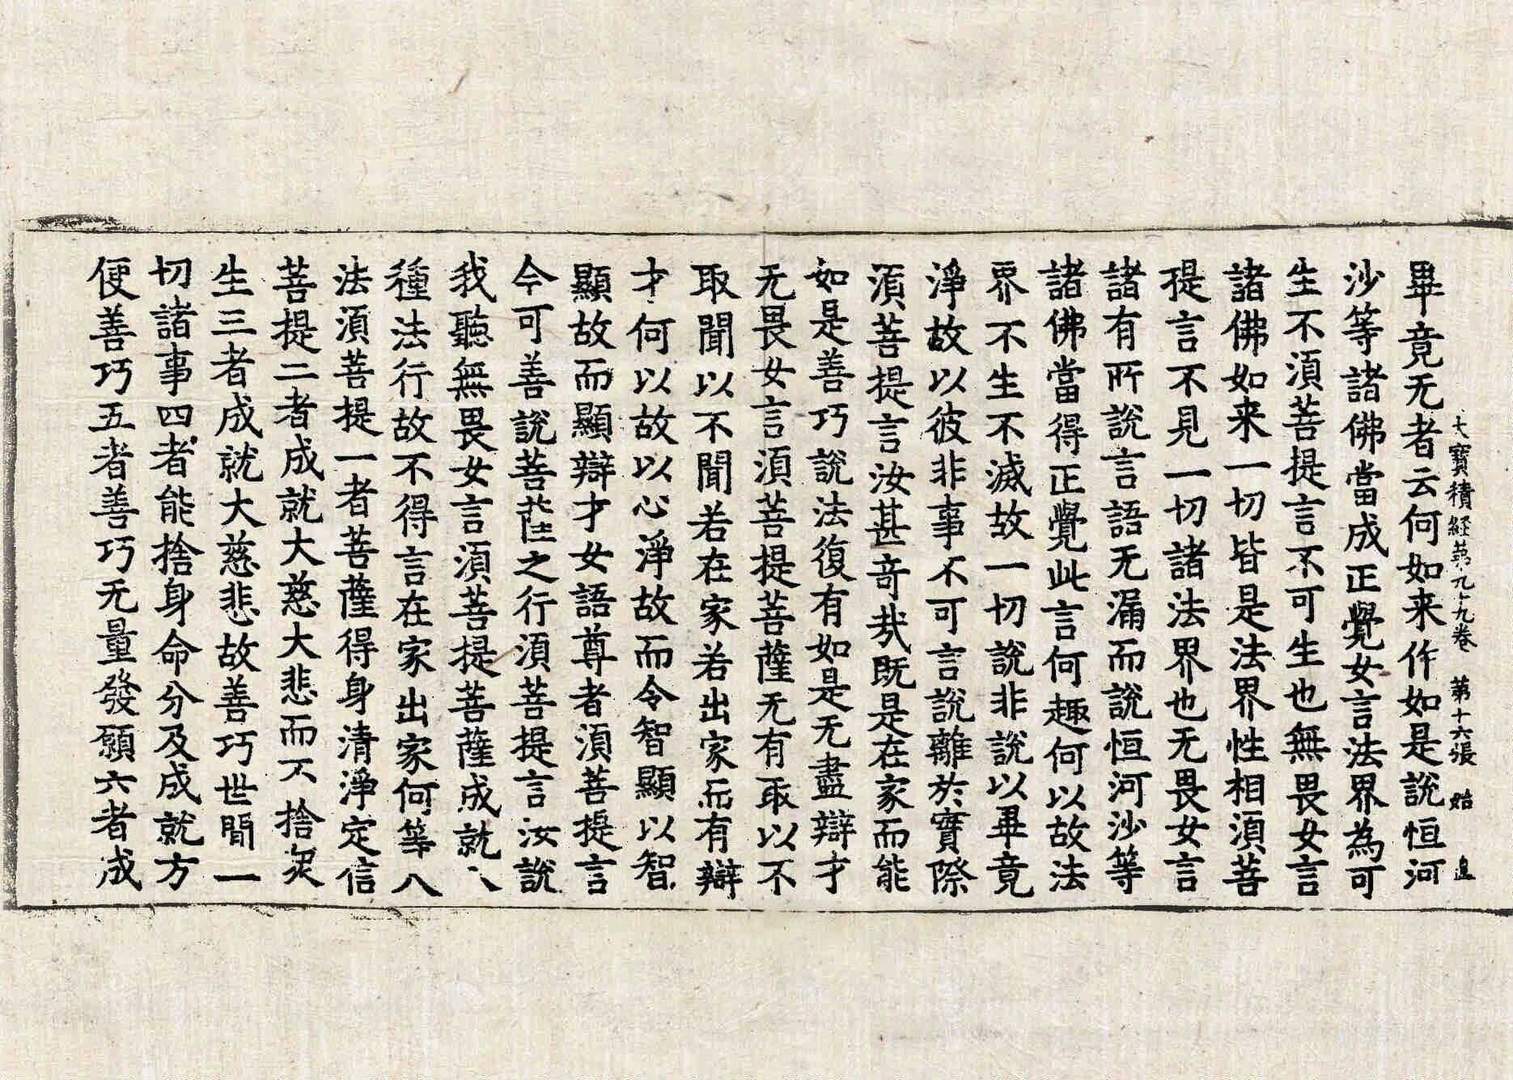 大寶積経苐九十九卷 苐十六張 始
畢竟无者云何如来作如是說恒河
沙等諸佛當成正覺女言法界為可
生不湏菩提言不可生也無畏女言
諸佛如来一切皆是法界性相湏菩
提言不見一切諸法界也无畏女言
諸有所說言語无漏而說恒河沙等
諸佛當得正覺此言何趣何以故法
界不生不滅故一切說非說以畢竟
淨故以彼非事不可言說離於實際
湏菩提言汝甚竒㢤既是在家而能
如是善巧說法復有如是无盡辯才
无畏女言湏菩提菩薩无有取以不
取聞以不聞若在家若出家而有辯
才何以故以心淨故而令智顯以智
顯故而顯辯才女語尊者湏菩提言
今可善說菩薩之行湏菩提言汝說
我聽無畏女言湏菩提菩薩成就八
種法行故不得言在家出家何等八
法湏菩提一者菩薩得身清淨定信
菩提二者成就大慈大悲而不捨衆
生三者成就大慈悲故善巧世間一
切諸事四者能捨身命分及成就方
便善巧五者善巧无量發願六者成